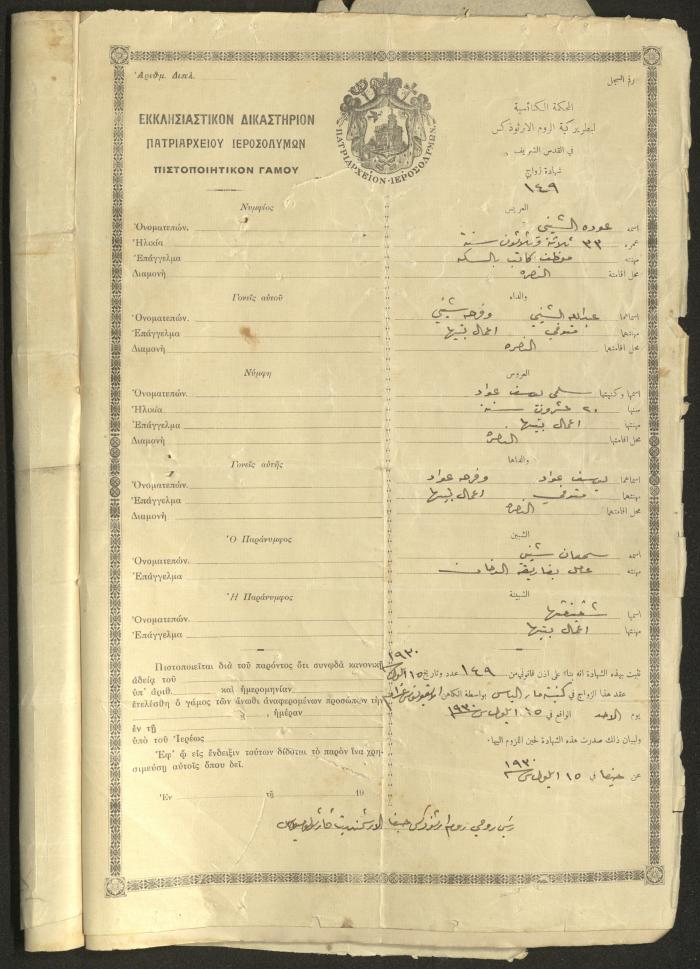 Ἀριθμ. Διπλ.
ΕΚΚΛΗΣΙΑΣΤΙΚΟΝ ΔΙΚΑΣΤΗΡΙΟΝ
ΠΑΤΡΙΑΡΧΕΙΟΥ ΙΕΡΟΣΟΛΥΜΩΝ
ΠΙΣΤΟΠΟΙΗΤΙΚΟΝ ΓΑΜΟΥ
ΠΑΤΡΙΑΡΧΕΙΟΝ·ΙΕΡΟΣΟΛΥΜΩΝ
رقم السجل
المحكمة الكنائسية
لبطريركية الروم الارثوذكس
في القدس الشريف
شهادة زواج
١٤٩
Νυμφίος
Ὀνοματεπών.
Ἡλικία
Ἐπάγγελμα
Διαμονὴ
العريس
اسمه عوده الشيني
عمره ٣٣ ثلاثة وثلاثون سنة
مهنته موظف كاتب بالسكه
محل اقامته الناصره
Γονεῖς αὐτοῦ
Ὀνοματεπών.
Ἐπάγγελμα
Διαμονὴ
والداه
اسماهما عبدالله الشيني وفرحه شيني
مهنتهما متوفي اعمال بيتها
محل اقامتهما الناصره
Νύμφη
Ὀνοματεπών.
Ἡλικία
Ἐπάγγελμα
Διαμονὴ
العروس
اسمها وكنيتها سلمى يوسف عواد
سنها ٢٠ عشرون سنة
مهنتها اعمال بيتها
محل اقامتها الناصره
Γονεῖς αὐτῆς
Ὀνοματεπών.
Ἐπάγγελμα
Διαμονὴ
والداها
اسماهما يوسف عواد وفرحه عواد
مهنتهما متوفي اعمال بيتها
محل اقامتهما الناصره
Ὁ Παράνυμφος
Ὀνοματεπών.
Ἐπάγγελμα
الشبين
اسمه سمعان شيني
مهنته بفابريقة الدخان
Ἡ Παράνυμφος
Ὀνοματεπών.
Ἐπάγγελμα
الشبينة
اسمها شقيقتها
مهنتها اعمال بيتها
Πιστοποιεῖται διὰ τοῦ παρόντος ὅτι συνῳδὰ κανονικῇ
ἀδείᾳ τοῦ
ὑπ' ἀριθ. καὶ ἡμερομηνίαν
ἐτελέσθη ὁ γάμος τῶν ἄνωθι ἀναφερομένων προσώπων τὴν
ἡμέραν
ἐν τῇ
ὑπὸ τοῦ Ἱερέως
Ἐφ' ᾧ εἰς ἔνδειξιν τούτων δίδοται τὸ παρὸν ἵνα χρη-
σιμεύσῃ αὐτοῖς ὅπου δεῖ.
Ἐν τῇ 19
تثبت بهذه الشهادة انه بناءً على اذن قانوني من ١٤٩ عدد وتاريخ ١٥ ايلول ١٩٣٠
عقد هذا الزواج في كنيسة مار الياس بواسطة الكاهن
يوم الاحد الواقع في ١٥ ايلول سنة ١٩٣٠
ولبيان ذلك صدرت هذه الشهادة لحين اللزوم اليها
عن حيفا في ١٥ ايلول سنة ١٩٣٠
رئيس روحي روم ارثوذكس حيفا الارشمندريت